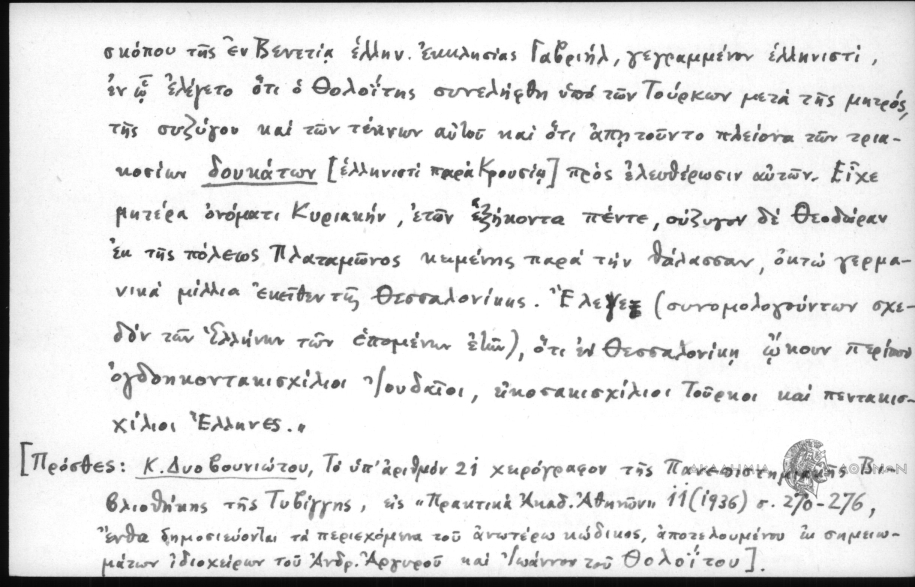 σκόπου τῆς ἐν Βενετίᾳ ἑλλην. ἐκκλησίας Γαβριήλ, γεγραμμένον ἑλληνιστί,
ἐν ᾧ ἐλέγετο ὅτι ὁ Θολοΐτης συνελήφθη ὑπό τῶν Τούρκων μετά τῆς μητρός,
τῆς συζύγου καί τῶν τέκνων αὐτοῦ καί ὅτι ἀπῃτοῦντο πλείονα τῶν τρια-
κοσίων δουκάτων [ἑλληνιστί παρά Κρουσίῳ] πρός ἐλευθέρωσιν αὐτῶν. Εἶχε
μητέρα ὀνόματι Κυριακήν, ἐτῶν ἑξήκοντα πέντε, σύζυγον δέ Θεοδώραν
ἐκ τῆς πόλεως Πλαταμῶνος κειμένης παρά τήν θάλασσαν, ὀκτώ γερμα-
νικά μίλλια ἐκεῖθεν τῆς Θεσσαλονίκης. Ἔλεγε (συνομολογούντων σχε-
δόν τῶν Ἑλλήνων τῶν ἑπομένων ἐτῶν), ὅτι ἐν Θεσσαλονίκῃ ᾤκουν περίπου
ὀγδοηκοντακισχίλιοι Ἰουδαῖοι, εἰκοσακισχίλιοι Τοῦρκοι καί πεντακισ-
χίλιοι Ἕλληνες."
[Πρόσθες: Κ. Δυοβουνιώτου, Τό ὑπ' ἀριθμόν 21 χειρόγραφον τῆς Πανεπιστημιακῆς Βι-
βλιοθήκης τῆς Τυβίγγης, εἰς «Πρακτικά Ἀκαδ. Ἀθηνῶν» 11 (1936) σ. 270-276,
ἔνθα δημοσιεύονται τά περιεχόμενα τοῦ ἀνωτέρω κώδικος, ἀποτελουμένου ἐκ σημειω-
μάτων ἰδιοχείρων τοῦ Ἀνδρ. Ἀργυροῦ καί Ἰωάννου τοῦ Θολοΐτου].
ΑΚΑΔΗΜΙΑ ΑΘΗΝΩΝ